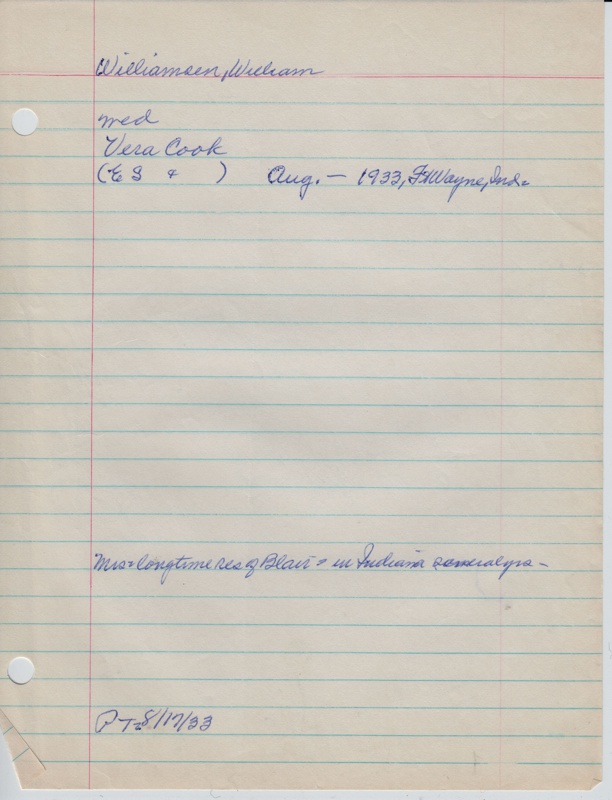 Williamsen, William
med
Vera Cook
(E S + ) Aug. — 1933, Ft Wayne, Ind-
Mrs = longtime res of Blair = in Indiana yrs -
P T = 8/17/33